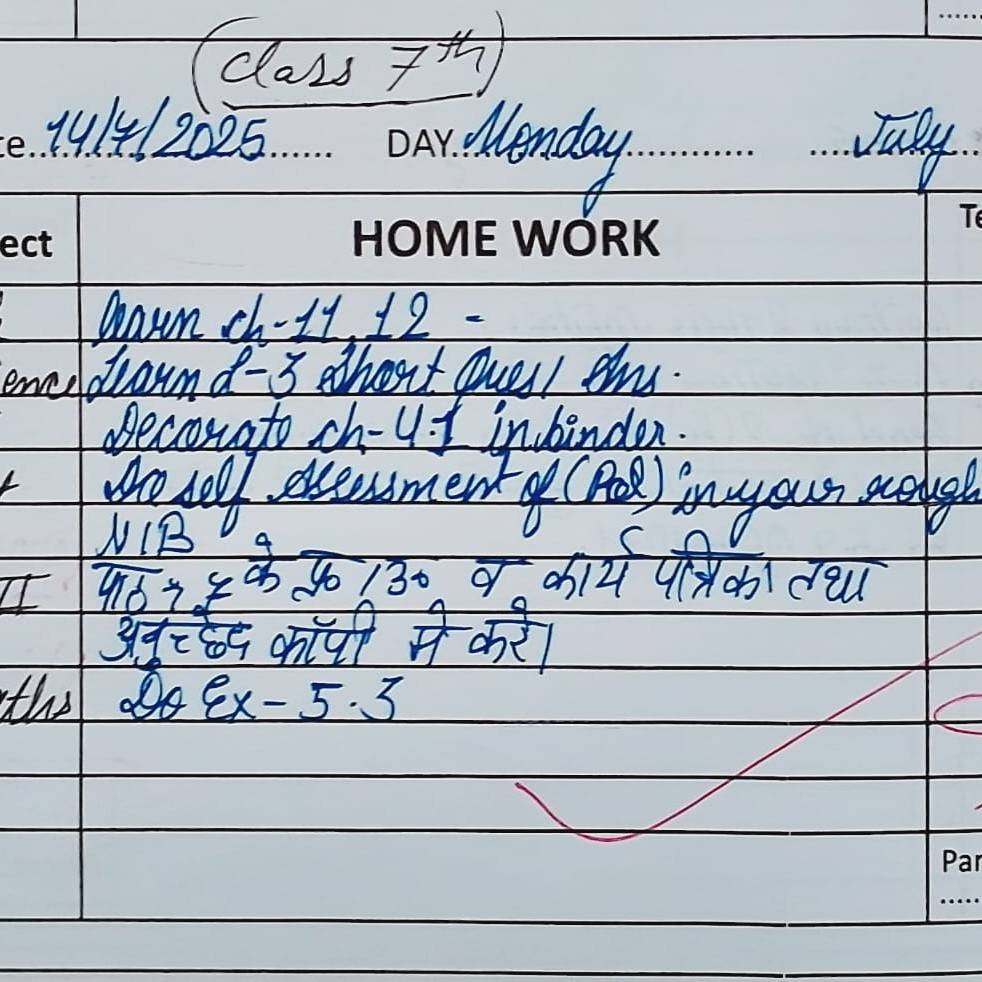 (Class 7th)
te. 14/7/2025 DAY. Monday July
ect HOME WORK Te
Learn ch-11, 12 -
ence Learn L-3 Short Ques/ Ans.
Decorate ch-4.1 in binder.
Do self Assessment of (Pol) in your rough
N/B
II पाठ 7 के पृ० 130 व कार्य पत्रिका तथा
अनुच्छेद कॉपी मे करे।
aths Do Ex-5.3
Par